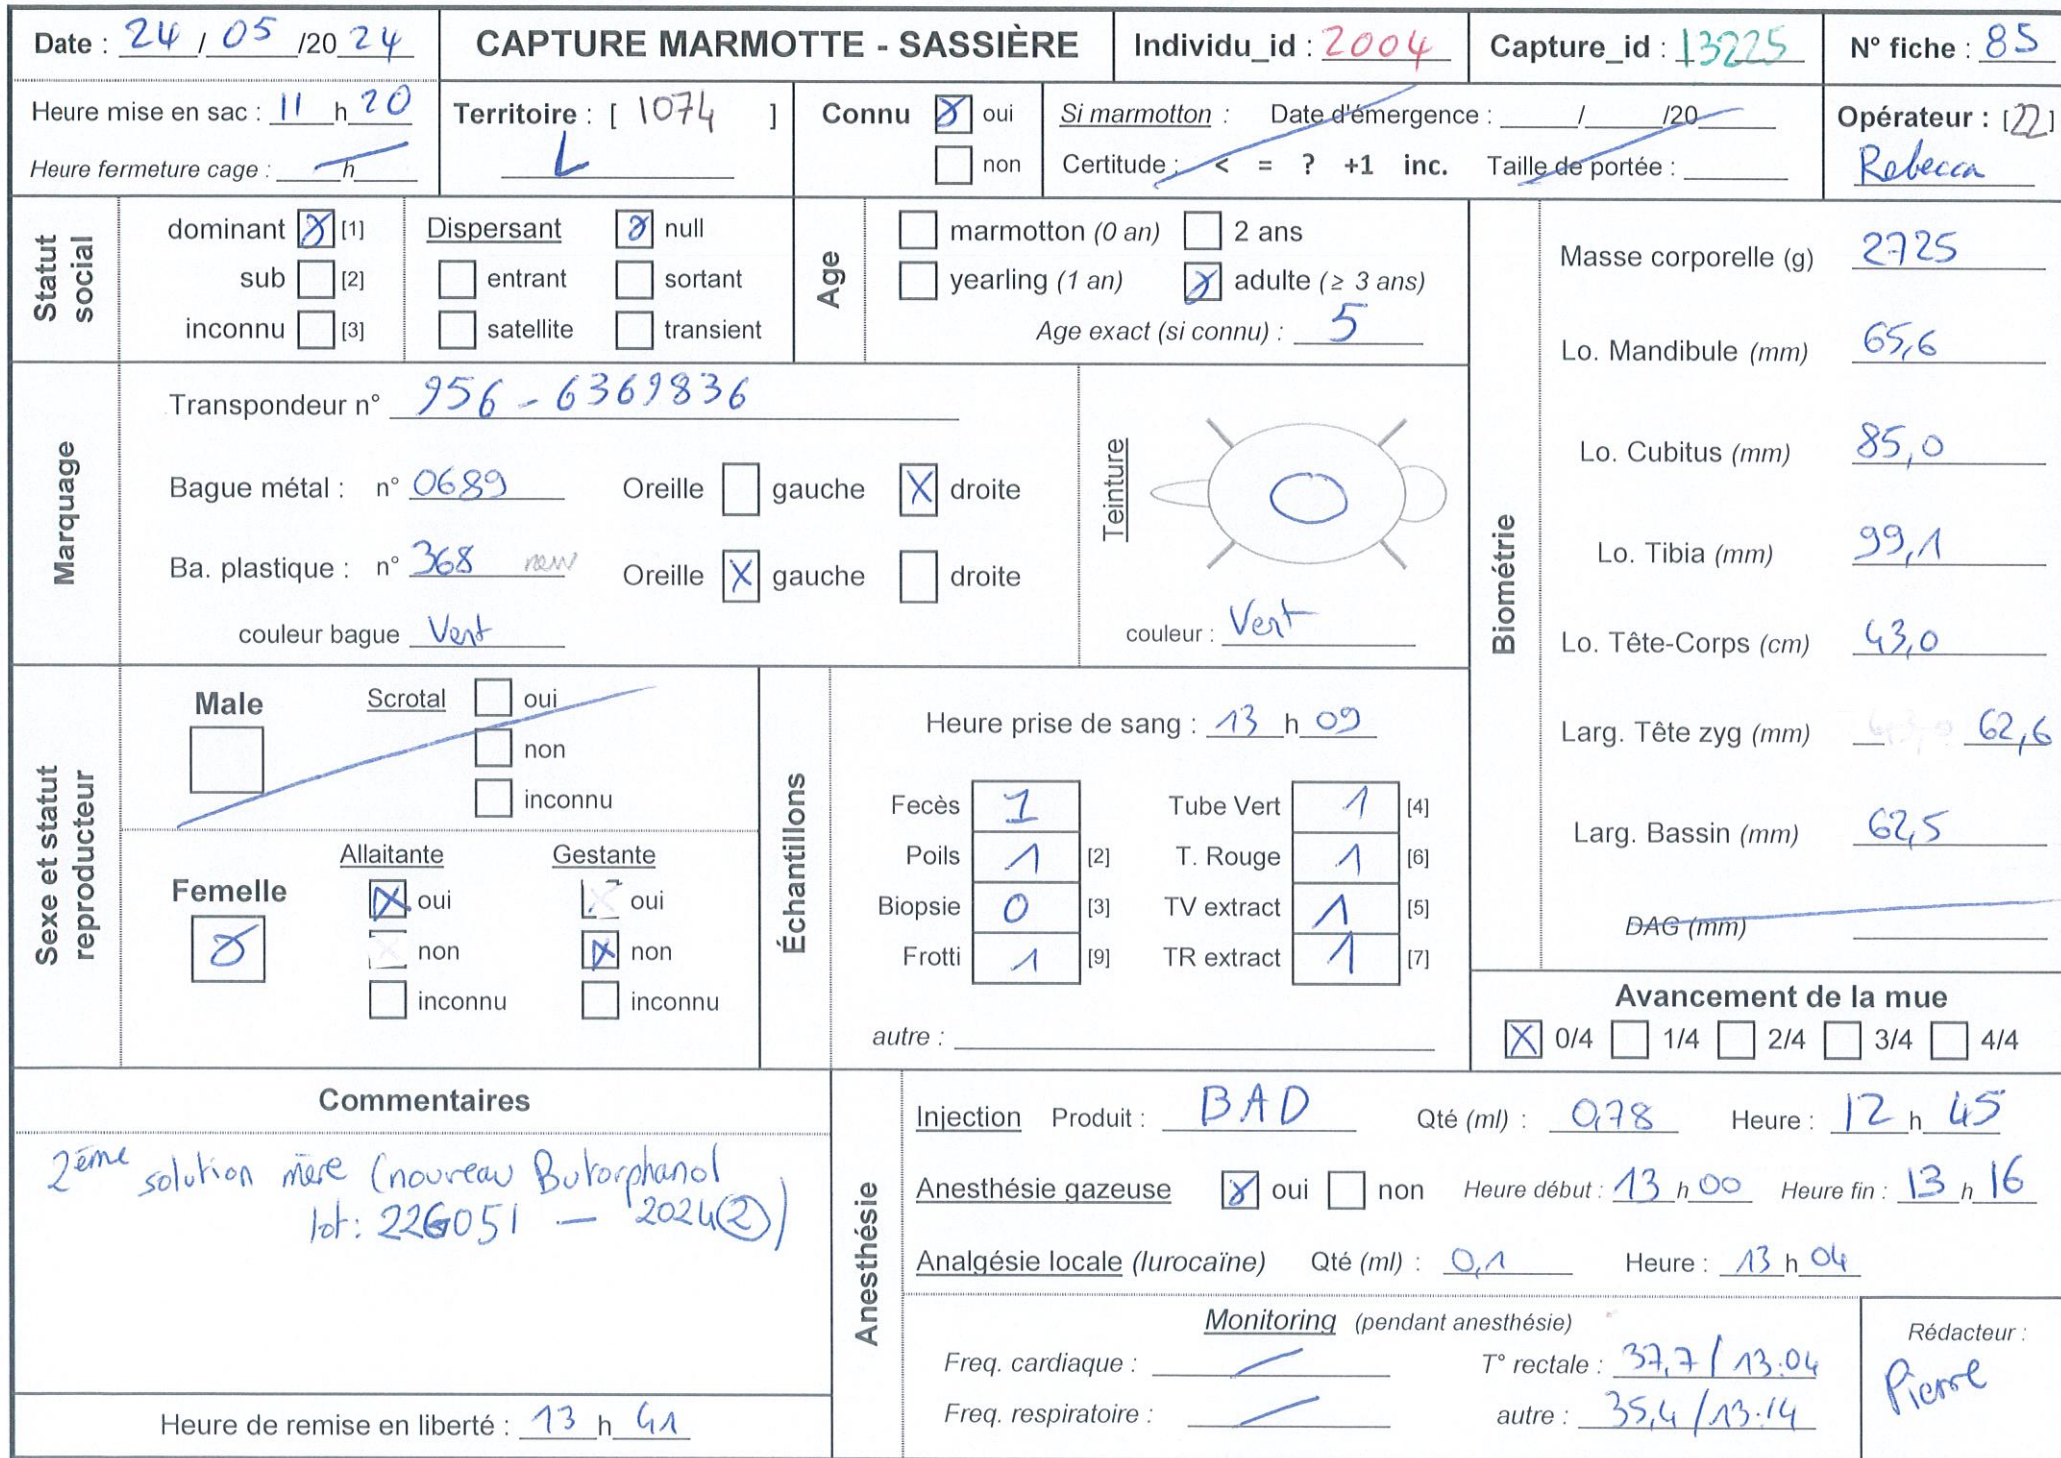 Date : 24 / 05 /20 24
CAPTURE MARMOTTE - SASSIÈRE
Individu_id : 2004
Capture_id : 13225
N° fiche : 85
Heure mise en sac : 11 h 20
Heure fermeture cage : h
Territoire : [ 1074 ]
L
Connu oui
non
Si marmotton : Date d'émergence : / /20
Certitude : < = ? +1 inc. Taille de portée :
Opérateur : [22]
Rebecca
Statut social
dominant [1]
sub [2]
inconnu [3]
Dispersant null
entrant sortant
satellite transient
Age
marmotton (0 an) 2 ans
yearling (1 an) adulte (≥ 3 ans)
Age exact (si connu) : 5
Marquage
Transpondeur n° 956 - 6369836
Bague métal : n° 0689 Oreille gauche X droite
Ba. plastique : n° 368 new Oreille X gauche droite
couleur bague Vert
Teinture
couleur : Vert
Biométrie
Masse corporelle (g) 2725
Lo. Mandibule (mm) 65,6
Lo. Cubitus (mm) 85,0
Lo. Tibia (mm) 99,1
Lo. Tête-Corps (cm) 43,0
Larg. Tête zyg (mm) 62,6
Larg. Bassin (mm) 62,5
DAG (mm)
Avancement de la mue
X 0/4 1/4 2/4 3/4 4/4
Sexe et statut reproducteur
Male
Scrotal oui
non
inconnu
Femelle
Allaitante
X oui
non
inconnu
Gestante
oui
X non
inconnu
Échantillons
Heure prise de sang : 13 h 09
Fecès 1 Tube Vert 1 [4]
Poils 1 [2] T. Rouge 1 [6]
Biopsie 0 [3] TV extract 1 [5]
Frotti 1 [9] TR extract 1 [7]
autre :
Commentaires
2ème solution mère (nouveau Butorphanol
lot: 226051 — 2024(2))
Heure de remise en liberté : 13 h 41
Anesthésie
Injection Produit : BAD Qté (ml) : 0,78 Heure : 12 h 45
Anesthésie gazeuse oui non Heure début : 13 h 00 Heure fin : 13 h 16
Analgésie locale (lurocaïne) Qté (ml) : 0,1 Heure : 13 h 04
Monitoring (pendant anesthésie)
Freq. cardiaque : T° rectale : 37,7 / 13:04
Freq. respiratoire : autre : 35,4 / 13:14
Rédacteur :
Pierre